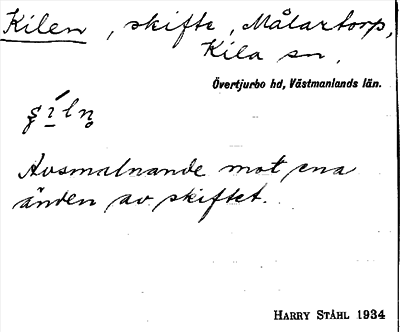 Kilen, skifte, Målartorp,
Kila sn.
Övertjurbo hd, Västmanlands län.
Avsmalnande mot ena
änden av skiftet.
HARRY STÅHL 1934